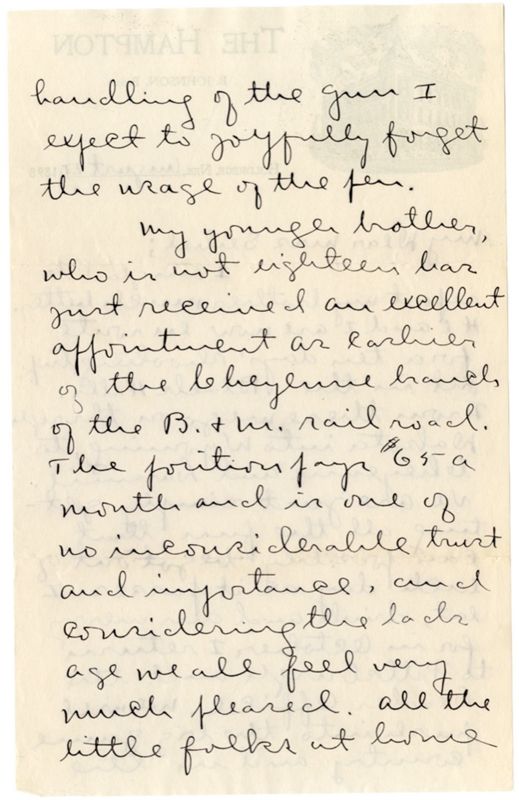 handling of the gun I
expect to joyfully forget
the usage of the pen.
My younger brother,
who is not eighteen has
just received an excellent
appointment as cashier
of the Cheyenne branch
of the B. & M. rail road.
The position pays $65 a
month and is one of
no inconsiderable trust
and importance, and
considering the lads
age we all feel very
much pleased. All the
little folks at home